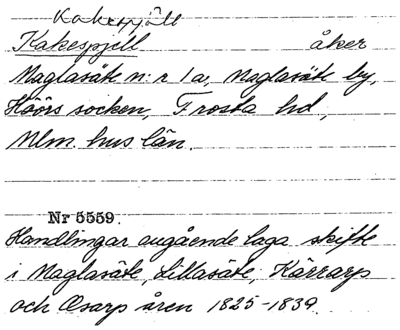 Kakespjäll
Kakespjell åker
Maglasäte n:r 1a, Maglasäte by,
Höörs socken, Frosta hd,
Mlm. hus län.
Nr 5559.
Handlingar angående laga skifte
i Maglasäte, Lillasäte, Kärrarp
och Osarp åren 1825-1839.